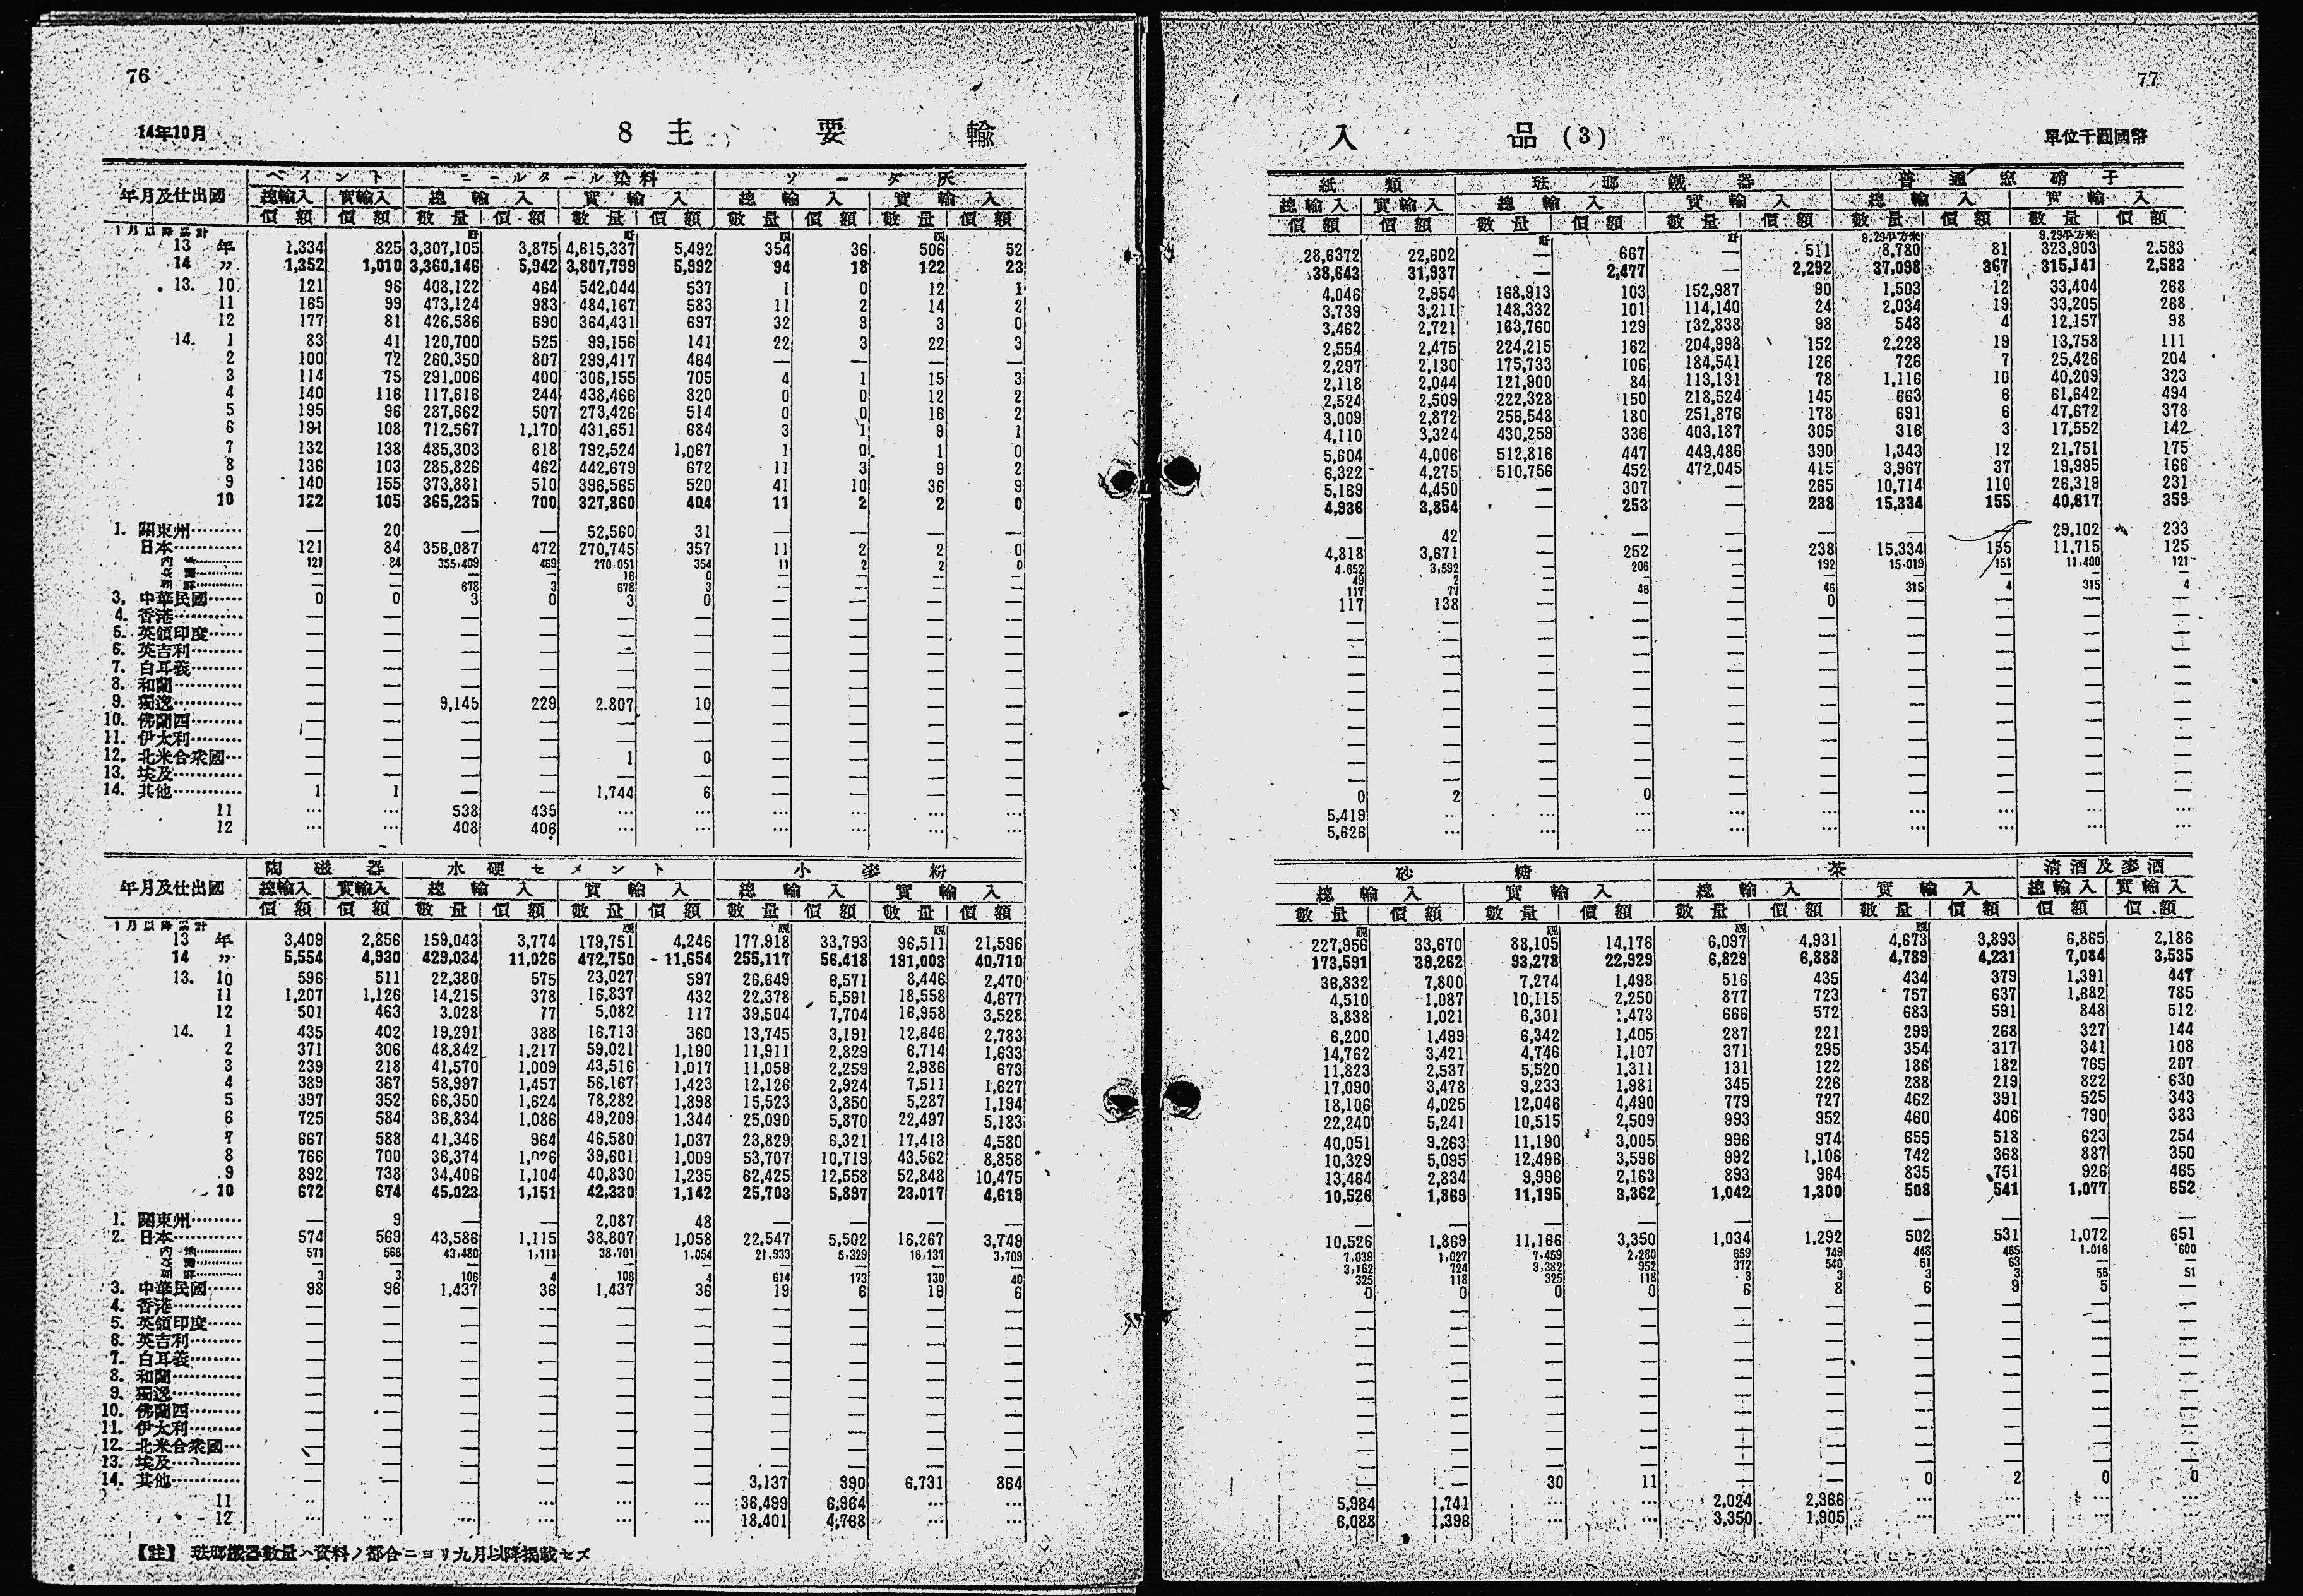 76
14年10月
8 主 要 輸
年月及仕出國 ペイント コールタール染料 ソーダ灰
總輸入 實輸入 總輸入 實輸入 總輸入 實輸入
價額 價額 數量 價額 數量 價額 數量 價額 數量 價額
1月以降累計
13年 1,334 825 3,307,105 3,875 4,615,337 5,492 354 36 506 52
14〃 1,352 1,010 3,360,146 5,942 3,807,799 5,992 94 18 122 23
13. 10 121 96 408,122 464 542,044 537 1 0 12 1
11 165 99 473,124 983 484,167 583 11 2 14 2
12 177 81 426,586 690 364,431 697 32 3 3 0
14. 1 83 41 120,700 525 99,156 141 22 3 22 3
2 100 72 260,350 807 299,417 464 — — — —
3 114 75 291,006 400 306,155 705 4 1 15 3
4 140 116 117,616 244 438,466 820 0 0 12 2
5 195 96 287,662 507 273,426 514 0 0 16 2
6 191 108 712,567 1,170 431,651 684 3 1 9 1
7 132 138 485,303 618 792,524 1,067 1 0 1 0
8 136 103 285,826 462 442,679 672 11 3 9 2
9 140 155 373,881 510 396,565 520 41 10 36 9
10 122 105 365,235 700 327,860 404 11 2 2 0
1. 關東州 — 20 — — 52,560 31 — — — —
日本 121 84 356,087 472 270,745 357 11 2 2 0
內地 121 84 355,409 469 270,051 354 11 2 2 0
臺灣 — — — — 16 0 — — — —
朝鮮 — — 678 3 678 3 — — — —
3. 中華民國 0 0 3 0 3 0 — — — —
4. 香港 — — — — — — — — — —
5. 英領印度 — — — — — — — — — —
6. 英吉利 — — — — — — — — — —
7. 白耳義 — — — — — — — — — —
8. 和蘭 — — — — — — — — — —
9. 獨逸 — — 9,145 229 2,807 10 — — — —
10. 佛蘭西 — — — — — — — — — —
11. 伊太利 — — — — — — — — — —
12. 北米合衆國 — — — — 1 0 — — — —
13. 埃及 — — — — — — — — — —
14. 其他 1 1 — — 1,744 6 — — — —
11 … … 538 435 … … … … … …
12 … … 408 406 … … … … … …
年月及仕出國 陶磁器 水硬セメント 小麥粉
總輸入 實輸入 總輸入 實輸入 總輸入 實輸入
價額 價額 數量 價額 數量 價額 數量 價額 數量 價額
1月以降累計
13年 3,409 2,856 159,043 3,774 179,751 4,246 177,918 33,793 96,511 21,596
14〃 5,554 4,930 429,034 11,026 472,750 11,654 255,117 56,418 191,003 40,710
13. 10 596 511 22,380 575 23,027 597 26,649 6,571 8,446 2,470
11 1,207 1,126 14,215 378 16,837 432 22,378 5,591 18,558 4,677
12 501 463 3,028 77 5,082 117 39,504 7,704 16,958 3,528
14. 1 435 402 19,291 388 16,713 360 13,745 3,191 12,646 2,783
2 371 306 48,842 1,217 59,021 1,190 11,911 2,829 6,714 1,633
3 239 218 41,570 1,009 43,516 1,017 11,059 2,259 2,986 673
4 389 367 58,997 1,457 56,167 1,423 12,126 2,924 7,511 1,627
5 397 352 66,350 1,624 78,282 1,898 15,523 3,850 5,287 1,194
6 725 584 36,834 1,086 49,209 1,344 25,090 5,870 22,497 5,183
7 667 588 41,346 964 46,580 1,037 23,829 6,321 17,413 4,580
8 766 700 36,374 39,601 1,009 53,707 10,719 43,562 8,856
9 892 738 34,406 1,104 40,830 1,235 62,425 12,558 52,848 10,475
10 672 674 45,023 1,151 42,330 1,142 25,703 5,897 23,017 4,619
1. 關東州 — 9 — — 2,087 48 — — — —
2. 日本 574 569 43,586 1,115 38,807 1,058 22,547 5,502 16,267 3,749
內地 571 566 43,480 1,111 38,701 1,054 21,933 5,329 16,137 3,709
臺灣 — — — — — — — — — —
朝鮮 3 3 106 4 106 4 614 173 130 40
3. 中華民國 98 96 1,437 36 1,437 36 19 6 19 6
4. 香港 — — — — — — — — — —
5. 英領印度 — — — — — — — — — —
6. 英吉利 — — — — — — — — — —
7. 白耳義 — — — — — — — — — —
8. 和蘭 — — — — — — — — — —
9. 獨逸 — — — — — — — — — —
10. 佛蘭西 — — — — — — — — — —
11. 伊太利 — — — — — — — — — —
12. 北米合衆國 — — — — — — — — — —
13. 埃及 — — — — — — — — — —
14. 其他 — — — — — — 3,137 390 6,731 864
11 … … … … … … 36,499 6,964 … …
12 … … … … … … 18,401 4,768 … …
【註】 琺瑯鐵器數量ハ資料ノ都合ニヨリ九月以降揭載セズ
77
入 品 (3)
單位千圓國幣
紙類 琺瑯鐵器 普通窓硝子
總輸入 實輸入 總輸入 實輸入 總輸入 實輸入
價額 價額 數量 價額 數量 價額 數量 價額 數量 價額
9.29平方米 9.29平方米
28,6372 22,602 — 667 — 511 8,780 81 323,903 2,583
38,643 31,937 — 2,477 — 2,292 37,098 367 315,141 2,583
4,046 2,954 168,913 103 152,987 90 1,503 12 33,404 268
3,739 3,211 148,332 101 114,140 24 2,034 19 33,205 268
3,462 2,721 163,760 129 132,838 98 548 4 12,157 98
2,554 2,475 224,215 162 204,998 152 2,228 19 13,758 111
2,297 2,130 175,733 106 184,541 126 726 7 25,426 204
2,118 2,044 121,900 84 113,131 78 1,116 10 40,209 323
2,524 2,509 222,328 150 218,524 145 663 6 61,642 494
3,009 2,872 256,548 180 251,876 178 691 6 47,672 378
4,110 3,324 430,259 336 403,187 305 316 3 17,552 142
5,604 4,006 512,816 447 449,486 390 1,343 12 21,751 175
6,322 4,275 510,756 452 472,045 415 3,967 37 19,995 166
5,169 4,450 — 307 — 265 10,714 110 26,319 231
4,936 3,854 — 253 — 238 15,334 155 40,817 359
— 42 — — — — — — 29,102 233
4,818 3,671 — 252 — 238 15,334 155 11,715 125
4,652 3,592 — 206 — 192 15,019 151 11,400 121
49 2 — — — — — — — —
117 77 — 46 — 46 315 4 315 4
117 138 — — — 0 — — — —
— — — — — — — — — —
— — — — — — — — — —
— — — — — — — — — —
— — — — — — — — — —
— — — — — — — — — —
— — — — — — — — — —
— — — — — — — — — —
— — — — — — — — — —
— — — — — — — — — —
— — — — — — — — — —
0 2 — 0 — — — — — —
5,419 … … … … … … … … …
5,626 … … … … … … … … …
砂糖 茶 清酒及麥酒
總輸入 實輸入 總輸入 實輸入 總輸入 實輸入
數量 價額 數量 價額 數量 價額 數量 價額 價額 價額
227,956 33,670 88,105 14,176 6,097 4,931 4,673 3,893 6,865 2,186
173,591 39,262 93,278 22,929 6,829 6,888 4,789 4,231 7,084 3,535
36,832 7,800 7,274 1,498 516 435 434 379 1,391 447
4,510 1,087 10,115 2,250 877 723 757 637 1,682 785
3,838 1,021 6,301 1,473 666 572 683 591 848 512
6,200 1,499 6,342 1,405 287 221 299 268 327 144
14,762 3,421 4,746 1,107 371 295 354 317 341 108
11,823 2,537 5,520 1,311 131 122 186 182 765 207
17,090 3,478 9,233 1,981 345 226 288 219 822 630
18,106 4,025 12,046 4,490 779 727 462 391 525 343
22,240 5,241 10,515 2,509 993 952 460 406 790 383
40,051 9,263 11,190 3,005 996 974 655 518 623 254
10,329 5,095 12,496 3,596 992 1,106 742 368 887 350
13,464 2,834 9,996 2,163 893 964 835 751 926 465
10,526 1,869 11,195 3,362 1,042 1,300 508 541 1,077 652
— — — — — — — — — —
10,526 1,869 11,166 3,350 1,034 1,292 502 531 1,072 651
7,039 1,027 7,459 2,280 659 749 448 465 1,016 600
3,162 724 3,382 952 372 540 51 63 — —
325 118 325 118 3 3 3 3 56 51
0 0 0 0 6 8 6 9 5 —
— — — — — — — — — —
— — — — — — — — — —
— — — — — — — — — —
— — — — — — — — — —
— — — — — — — — — —
— — — — — — — — — —
— — — — — — — — — —
— — — — — — — — — —
— — — — — — — — — —
— — — — — — — — — —
— — 30 11 — — 0 2 0 0
5,984 1,741 … … 2,024 2,366 … … … …
6,088 1,396 … … 3,350 1,905 … … … …